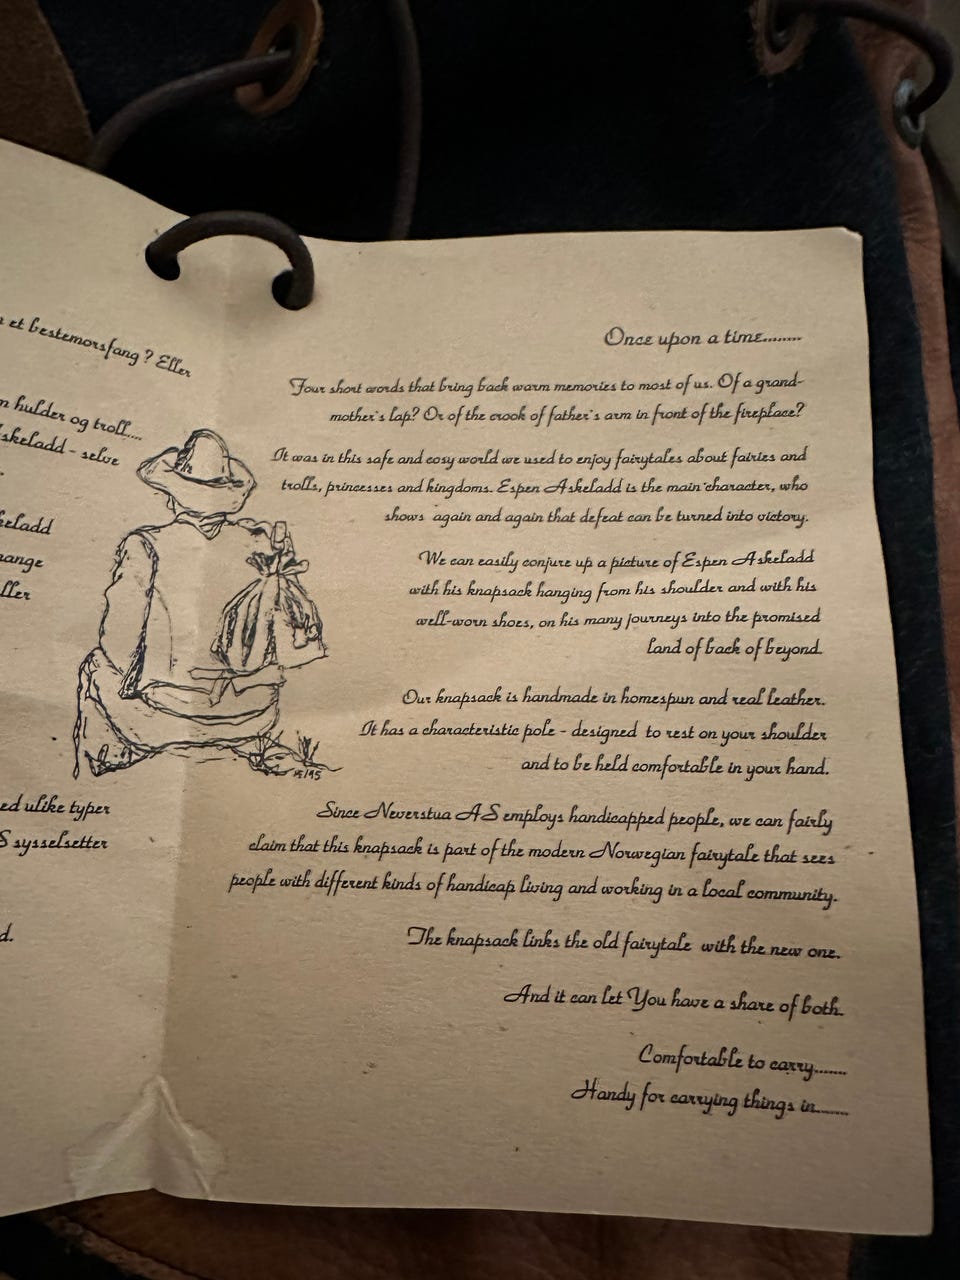 et bestemorsfang ? Eller
hulder og troll....
skeladd - selve
keladd
ange
ller
ed ulike typer
S sysselsetter
d.
Once upon a time........
Four short words that bring back warm memories to most of us. Of a grand-
mother's lap? Or of the crook of father's arm in front of the fireplace?
It was in this safe and cosy world we used to enjoy fairytales about fairies and
trolls, princesses and kingdoms. Espen Askeladd is the main character, who
shows again and again that defeat can be turned into victory.
We can easily conjure up a picture of Espen Askeladd
with his knapsack hanging from his shoulder and with his
well-worn shoes, on his many journeys into the promised
land of back of beyond.
Our knapsack is handmade in homespun and real leather.
It has a characteristic pole - designed to rest on your shoulder
and to be held comfortable in your hand.
Since Neverstua AS employs handicapped people, we can fairly
claim that this knapsack is part of the modern Norwegian fairytale that sees
people with different kinds of handicap living and working in a local community.
The knapsack links the old fairytale with the new one.
And it can let You have a share of both.
Comfortable to carry.......
Handy for carrying things in.......
15/95